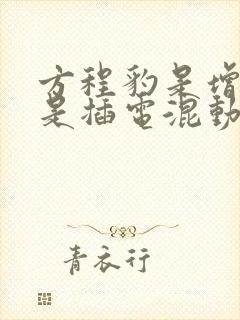 方程豹是增
是插電混動
青衣行